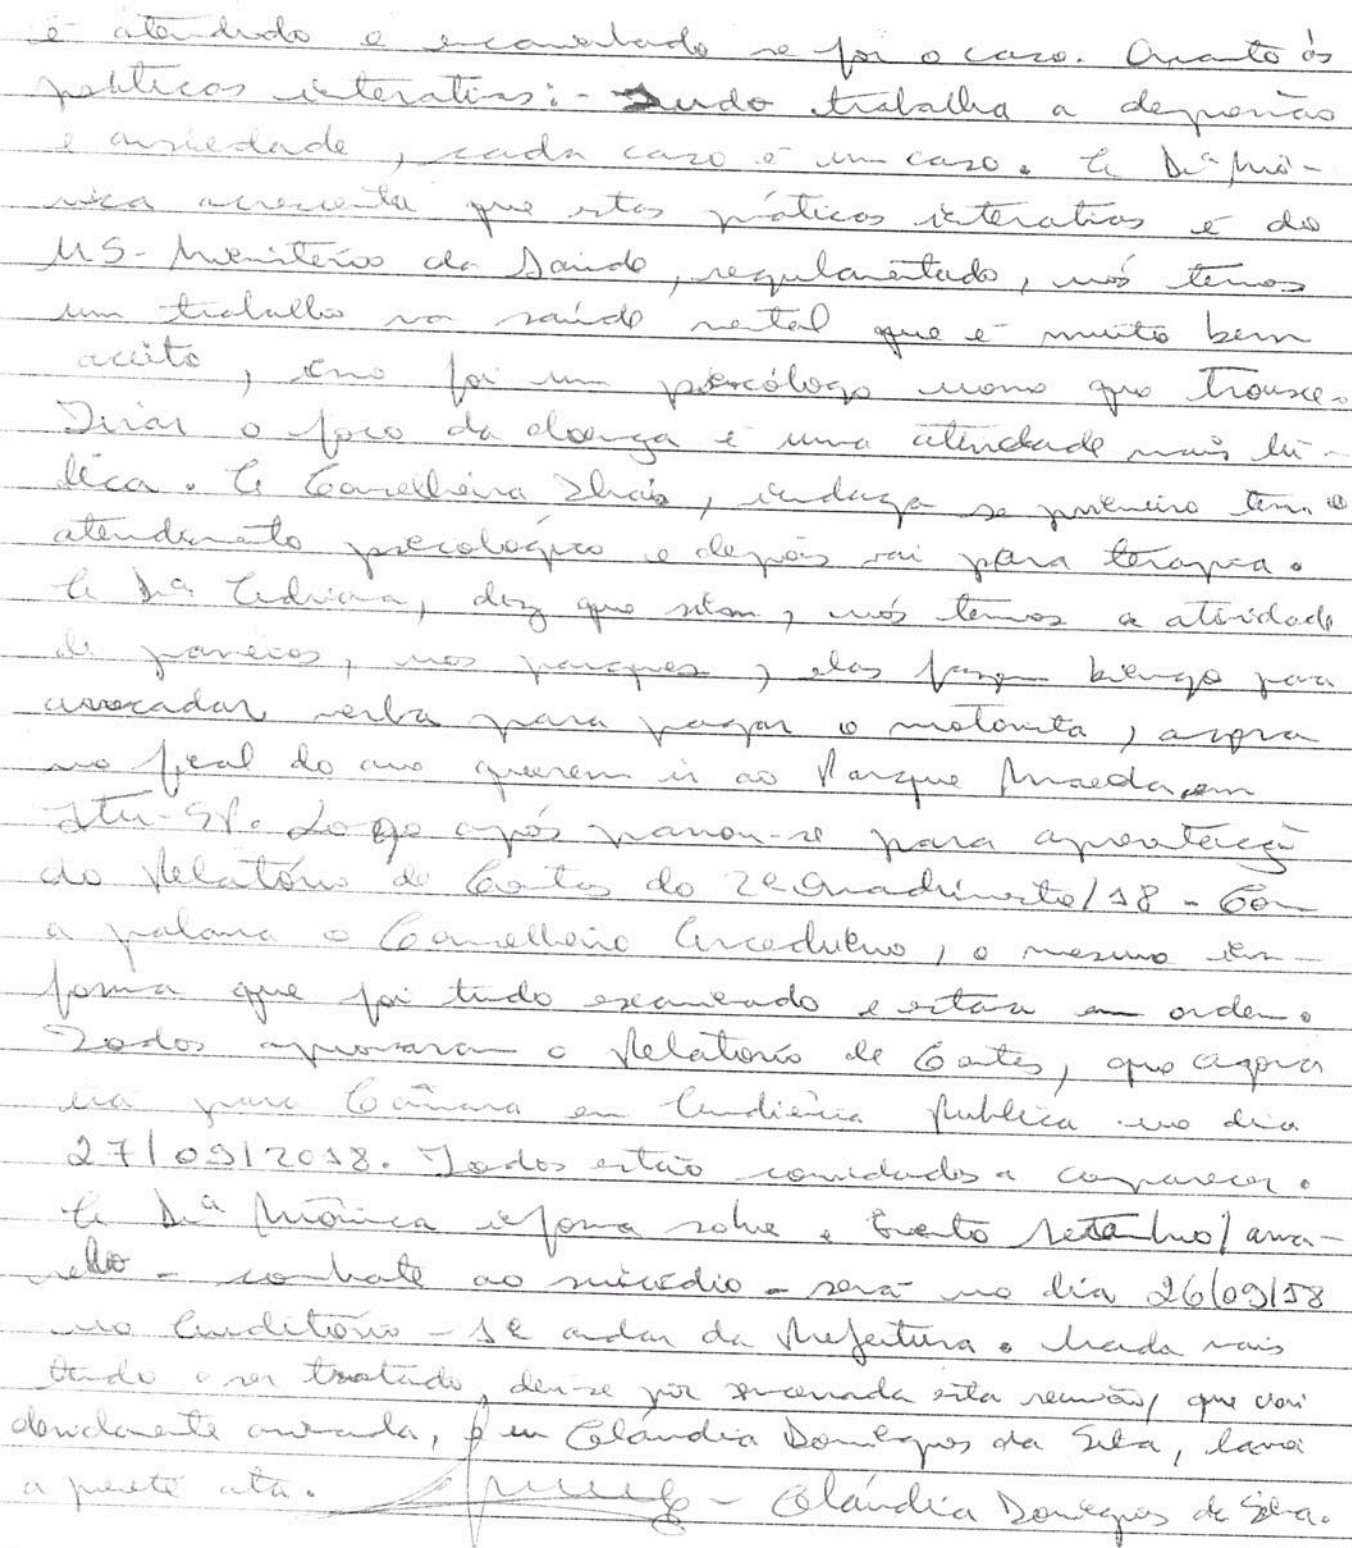 é atendido e encaminhado se for o caso. Quanto às
práticas interativas: - Tudo trabalha a depressão
e ansiedade, cada caso é um caso. A Drª Mô-
nica acrescenta que estas práticas interativas é do
MS - Ministério da Saúde, regulamentado, nós temos
um trabalho na saúde mental que é muito bem
aceito, foi um psicólogo novo que trouxe.
Tirar o foco da doença é uma atividade mais lú-
dica. A Conselheira Thais, indaga se primeiro tem o
atendimento psicológico e depois vai para terapia.
A Drª Adriana, diz que sim, nós temos a atividade
de passeios, nos parques, elas fazem bingo para
arrecadar verba para pagar o motorista, agora
no final do ano querem ir ao Parque Maeda, em
Itu-SP. Logo após passou-se para apresentação
do Relatório de Contas do 2º Quadrimestre/18 - Com
a palavra o Conselheiro Arcedulino, o mesmo in-
forma que foi tudo examinado e estava em ordem.
Todos aprovaram o Relatório de Contas, que agora
irá para Câmara em Audiência Publica no dia
27/09/2018. Todos estão convidados a comparecer.
A Drª Mônica informa sobre o Evento Setembro/ama-
relo - combate ao suicídio - será no dia 26/09/18
no Auditório - 1º andar da Prefeitura. Nada mais
tendo a ser tratado, deu-se por encerrada esta reunião, que vai
devidamente assinada, eu Cláudia Domingos da Silva, lavrei
a presente ata. - Cláudia Domingos da Silva.